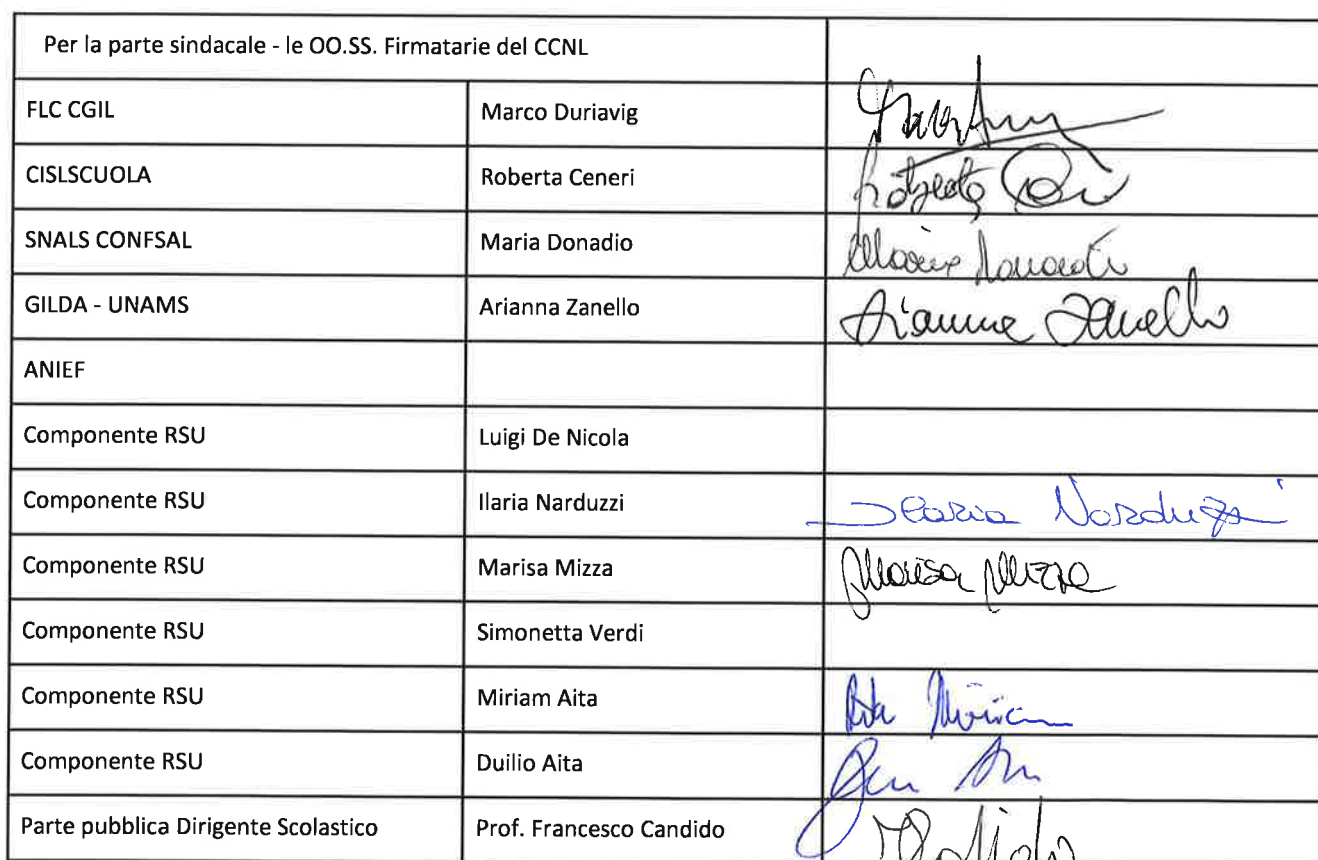 Per la parte sindacale - le OO.SS. Firmatarie del CCNL
FLC CGIL Marco Duriavig
CISLSCUOLA Roberta Ceneri
SNALS CONFSAL Maria Donadio
GILDA - UNAMS Arianna Zanello Arianna Zanello
ANIEF
Componente RSU Luigi De Nicola
Componente RSU Ilaria Narduzzi Ilaria Narduzzi
Componente RSU Marisa Mizza Marisa Mizza
Componente RSU Simonetta Verdi
Componente RSU Miriam Aita Aita Miriam
Componente RSU Duilio Aita
Parte pubblica Dirigente Scolastico Prof. Francesco Candido